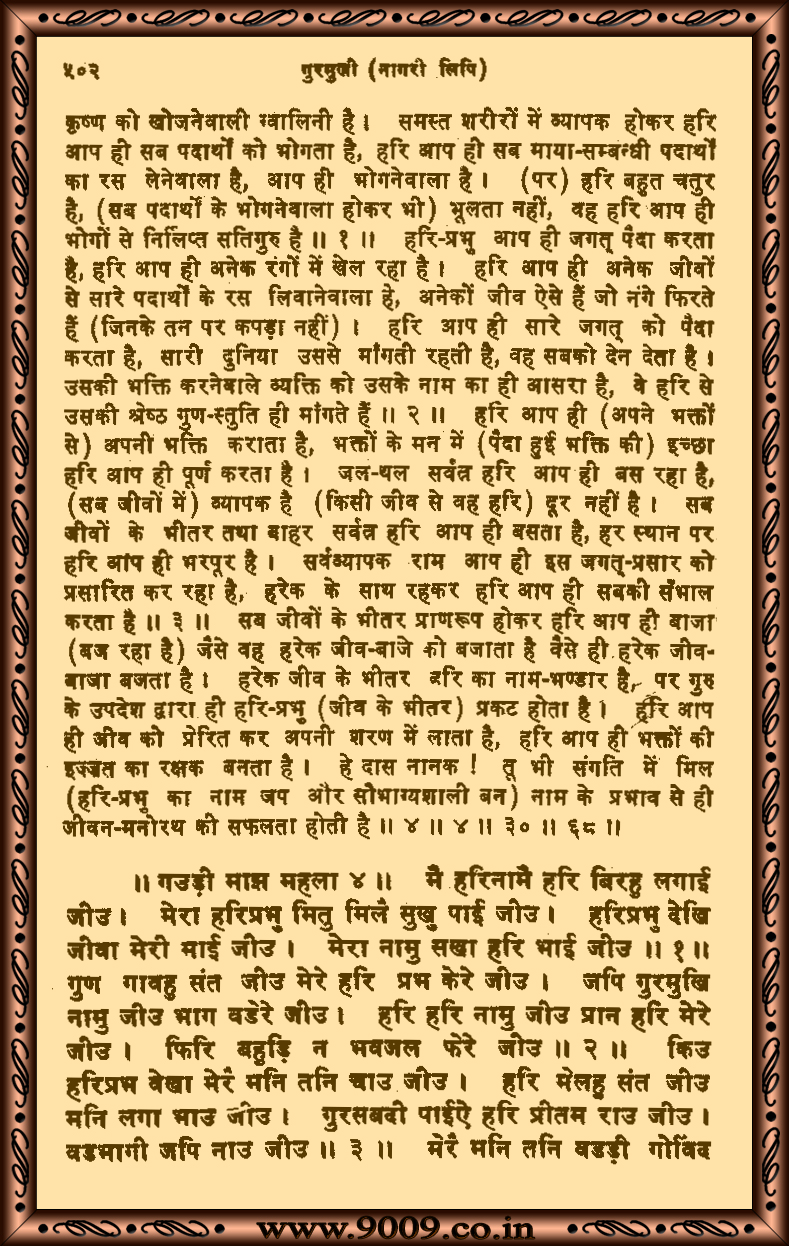 ५०२ गुरमुखी (नागरी लिपि)
कृष्ण को खोजनेवाली ग्वालिनी है। समस्त शरीरों में व्यापक होकर हरि
आप ही सब पदार्थों को भोगता है, हरि आप ही सब माया-सम्बन्धी पदार्थों
का रस लेनेवाला है, आप ही भोगनेवाला है। (पर) हरि बहुत चतुर
है, (सब पदार्थों के भोगनेवाला होकर भी) भूलता नहीं, वह हरि आप ही
भोगों से निर्लिप्त सतिगुरु है॥ १॥ हरि-प्रभु आप ही जगत् पैदा करता
है, हरि आप ही अनेक रंगों में खेल रहा है। हरि आप ही अनेक जीवों
से सारे पदार्थों के रस लिवानेवाला हे, अनेकों जीव ऐसे हैं जो नंगे फिरते
हैं (जिनके तन पर कपड़ा नहीं)। हरि आप ही सारे जगत् को पैदा
करता है, सारी दुनिया उससे माँगती रहती है, वह सबको देन देता है।
उसकी भक्ति करनेवाले व्यक्ति को उसके नाम का ही आसरा है, वे हरि से
उसकी श्रेष्ठ गुण-स्तुति ही माँगते हैं॥ २॥ हरि आप ही (अपने भक्तों
से) अपनी भक्ति कराता है, भक्तों के मन में (पैदा हुई भक्ति की) इच्छा
हरि आप ही पूर्ण करता है। जल-थल सर्वत्र हरि आप ही बस रहा है,
(सब जीवों में) व्यापक है (किसी जीव से वह हरि) दूर नहीं है। सब
जीवों के भीतर तथा बाहर सर्वत्र हरि आप ही बसता है, हर स्थान पर
हरि आप ही भरपूर है। सर्वव्यापक राम आप ही इस जगत्-प्रसार को
प्रसारित कर रहा है, हरेक के साथ रहकर हरि आप ही सबकी सँभाल
करता है॥ ३॥ सब जीवों के भीतर प्राणरूप होकर हरि आप ही बाजा
(बज रहा है) जैसे वह हरेक जीव-बाजे को बजाता है वैसे ही हरेक जीव-
बाजा बजता है। हरेक जीव के भीतर हरि का नाम-भण्डार है, पर गुरु
के उपदेश द्वारा ही हरि-प्रभु (जीव के भीतर) प्रकट होता है। हरि आप
ही जीव को प्रेरित कर अपनी शरण में लाता है, हरि आप ही भक्तों की
इज्जत का रक्षक बनता है। हे दास नानक! तू भी संगति में मिल
(हरि-प्रभु का नाम जप और सौभाग्यशाली बन) नाम के प्रभाव से ही
जीवन-मनोरथ की सफलता होती है॥ ४॥ ४॥ ३०॥ ६८॥
॥ गउड़ी माझ महला ४॥ मै हरिनामै हरि बिरहु लगाई
जीउ। मेरा हरिप्रभु मितु मिलै सुखु पाई जीउ। हरिप्रभु देखि
जीवा मेरी माई जीउ। मेरा नामु सखा हरि भाई जीउ॥ १॥
गुण गावहु संत जीउ मेरे हरि प्रभ केरे जीउ। जपि गुरमुखि
नामु जीउ भाग वडेरे जीउ। हरि हरि नामु जीउ प्रान हरि मेरे
जीउ। फिरि बहुड़ि न भवजल फेरे जीउ॥ २॥ किउ
हरिप्रभ वेखा मेरै मनि तनि चाउ जीउ। हरि मेलहु संत जीउ
मनि लगा भाउ जीउ। गुरसबदी पाईऐ हरि प्रीतम राउ जीउ।
वडभागी जपि नाउ जीउ॥ ३॥ मेरै मनि तनि वडड़ी गोविंद
www.9009.co.in